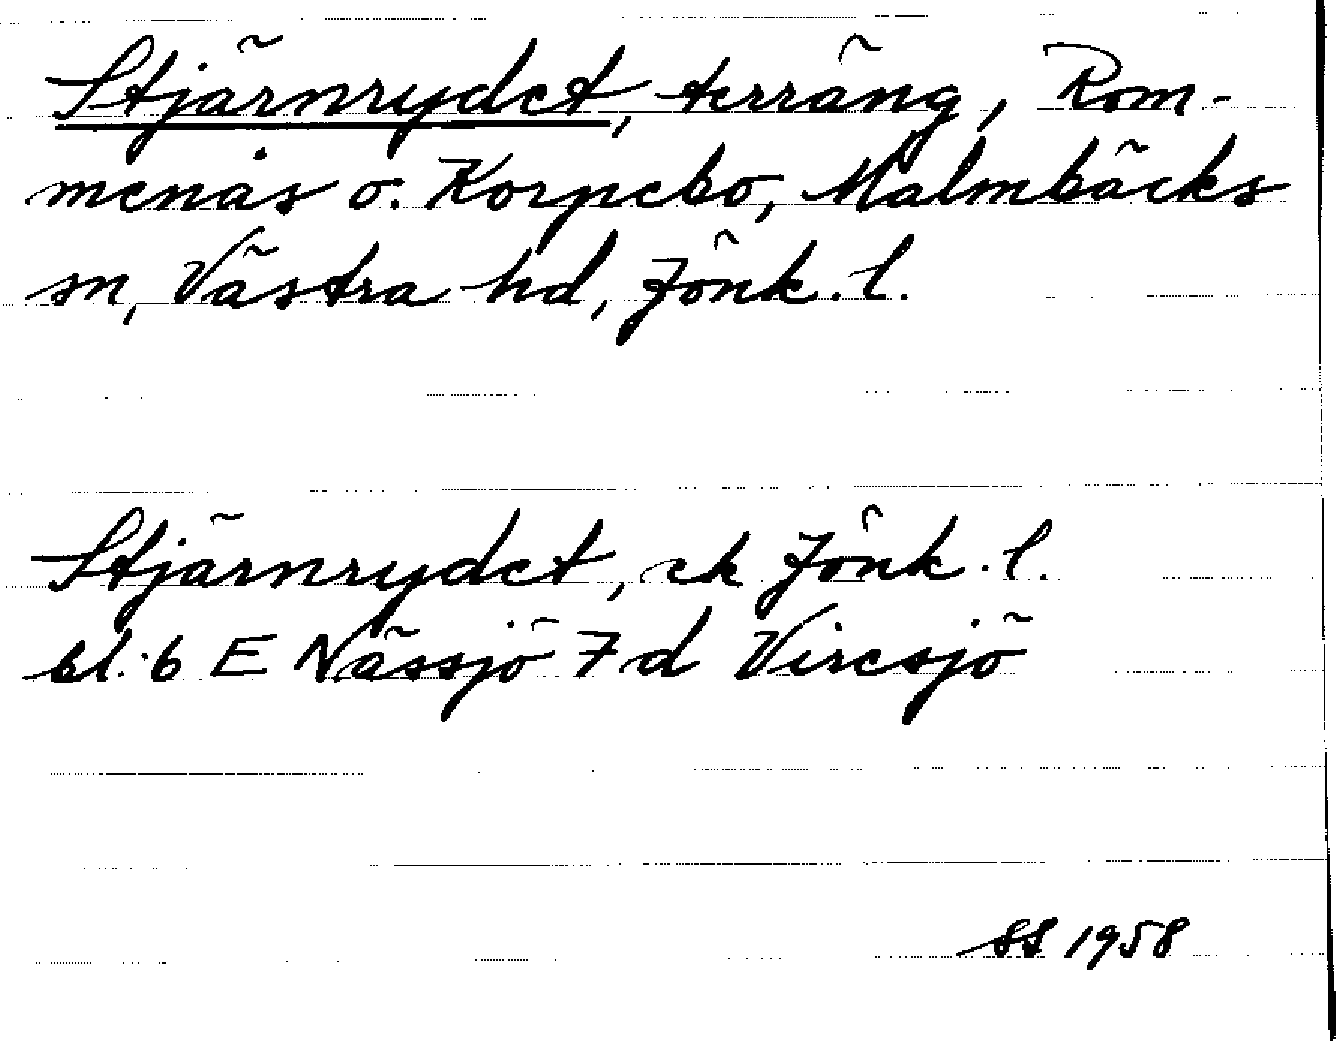 Stjärnrydet, terräng, Rom-
menås o. Korpebo, Malmbäcks
sn, Västra hd, Jönk. l.
Stjärnrydet, ek Jönk. l.
bl. 6 E Nässjö 7 d Viresjö
SS 1958